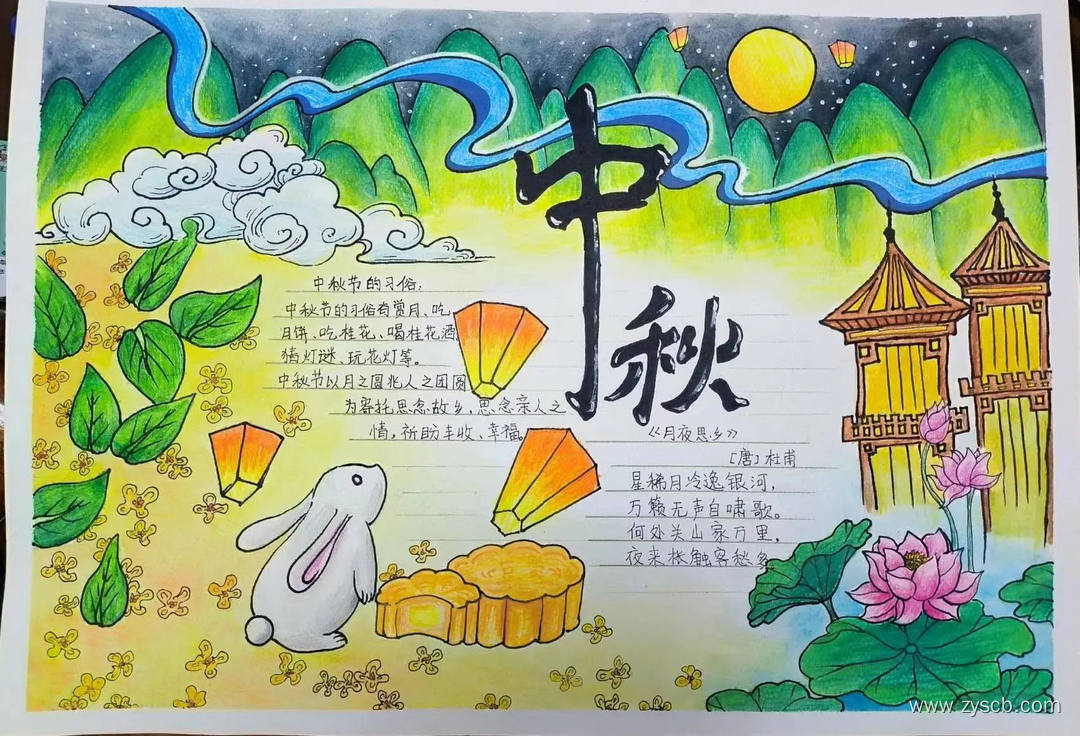 中秋
中秋节的习俗：
中秋节的习俗有赏月、吃
月饼、吃桂花、喝桂花酒
猜灯谜、玩花灯等。
中秋节以月之圆兆人之团圆
为寄托思念故乡，思念亲人之
情，祈盼丰收、幸福。
《月夜思乡》
[唐]杜甫
星稀月冷逸银河，
万籁无声自啸歌。
何处关山家万里，
夜来枨触客愁多
www.zyscb.com